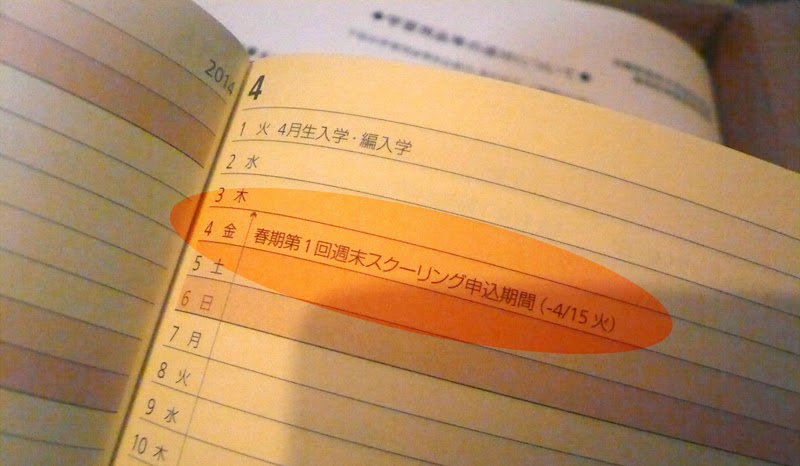 2014
4
1 火 4月生入学・編入学
2 水
3 木
4 金 春期第1回週末スクーリング申込期間（-4/15 火）
5 土
6 日
7 月
8 火
9 水
10 木